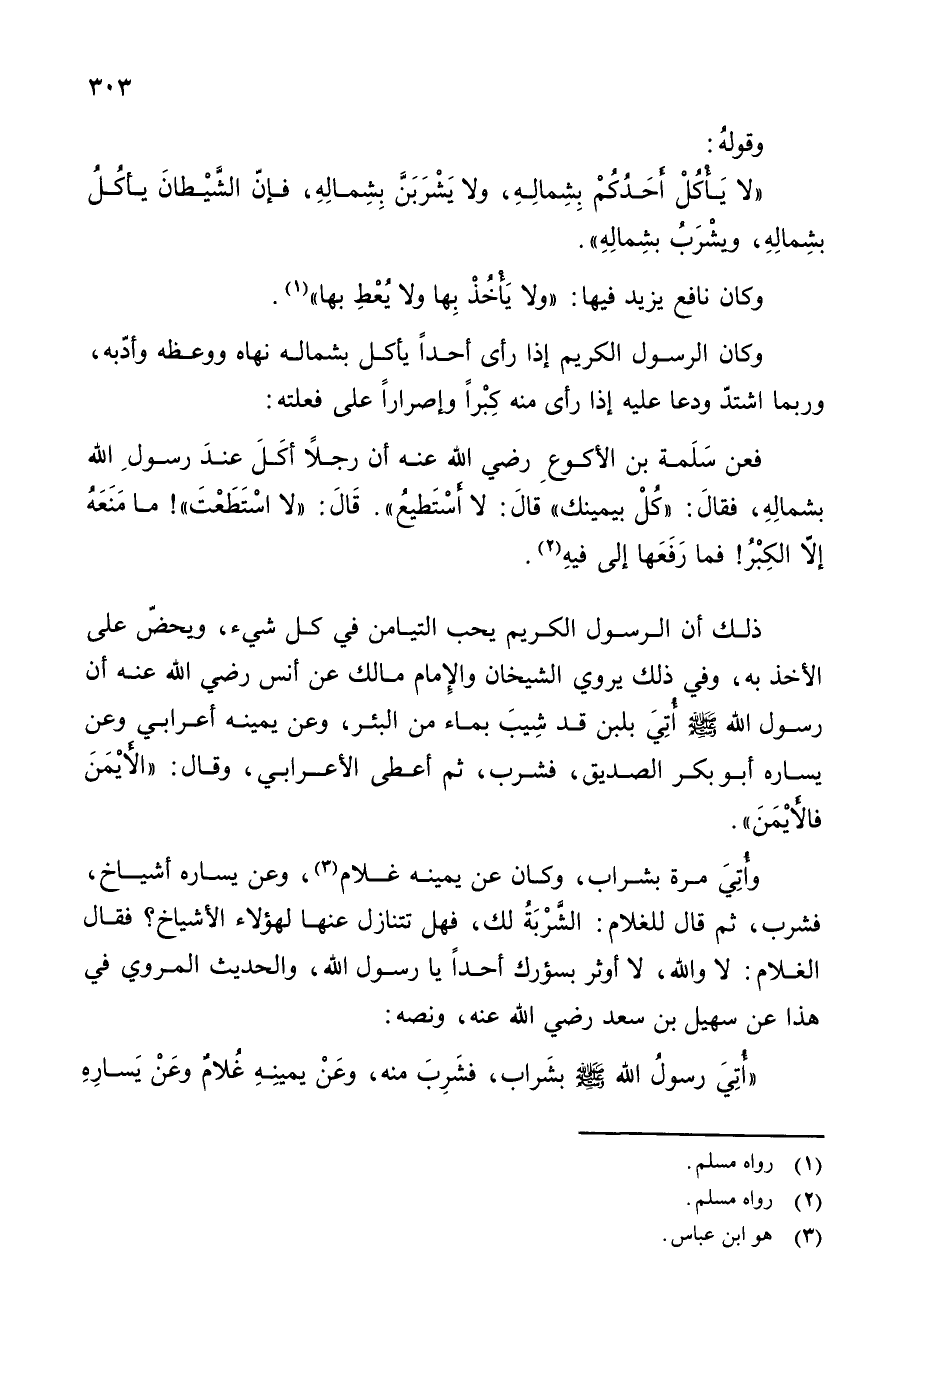 ٣٠٣
وقولهُ:
«لا يَـأْكُلْ أَحَـدُكُمْ بِشِمالِـهِ، ولا يَشْرَبَنَّ بِشِمـالِهِ، فـإنّ الشَّيْـطانَ يـأكُـلُ
بشِمالِهِ، ويشْرَبُ بشِمالِهِ».
وكان نافع يزيد فيها: «ولا يَأْخُذْ بِها ولا يُعْطِ بها»(١).
وكان الرسـول الكريم إذا رأى أحـداً يأكـل بشمالـه نهاه ووعـظه وأدّبه،
وربما اشتدّ ودعا عليه إذا رأى منه كِبْراً وإصراراً على فعلته:
فعن سَلَمـة بن الأكـوعِ رضي الله عنـه أن رجـلاً أكَـلَ عنـدَ رسـولِ الله
بشمالِهِ، فقالَ: «كُلْ بيمينك» قالَ: لا أَسْتَطيعُ». قَالَ: «لا اسْتَطَعْتَ»! مـا مَنَعَهُ
إلّا الكِبْرُ! فما رَفَعَها إلى فيهِ(٢).
ذلـك أن الـرسـول الكـريم يحب التيـامن في كـل شيء، ويحضّ على
الأخذ به، وفي ذلك يروي الشيخان والإمام مـالك عن أنس رضي الله عنـه أن
رسـول الله ﷺ أُتِيَ بلبن قـد شِيبَ بمـاء من البئـر، وعن يمينـه أعـرابـي وعن
يسـاره أبـو بكـر الصـديق، فشـرب، ثم أعـطى الأعـرابـي، وقـال: «الأَيْمَنَ
فالأَيْمَنَ».
وأُتِيَ مـرة بشـراب، وكـان عن يمينـه غـلام(٣)، وعن يسـاره أشيـاخ،
فشرب، ثم قال للغلام: الشَّرْبَةُ لك، فهل تتنازل عنهـا لهؤلاء الأشياخ؟ فقـال
الغـلام: لا والله، لا أوثر بسؤرك أحـداً يا رسـول الله، والحديث المـروي في
هذا عن سهيل بن سعد رضي الله عنه، ونصه:
«أُتِيَ رسولُ الله ﷺ بشَراب، فشَرِبَ منه، وعَنْ يمينِـهِ غُلامٌ وعَنْ يَسـارِهِ
(١) رواه مسلم.
(٢) رواه مسلم.
(٣) هو ابن عباس.